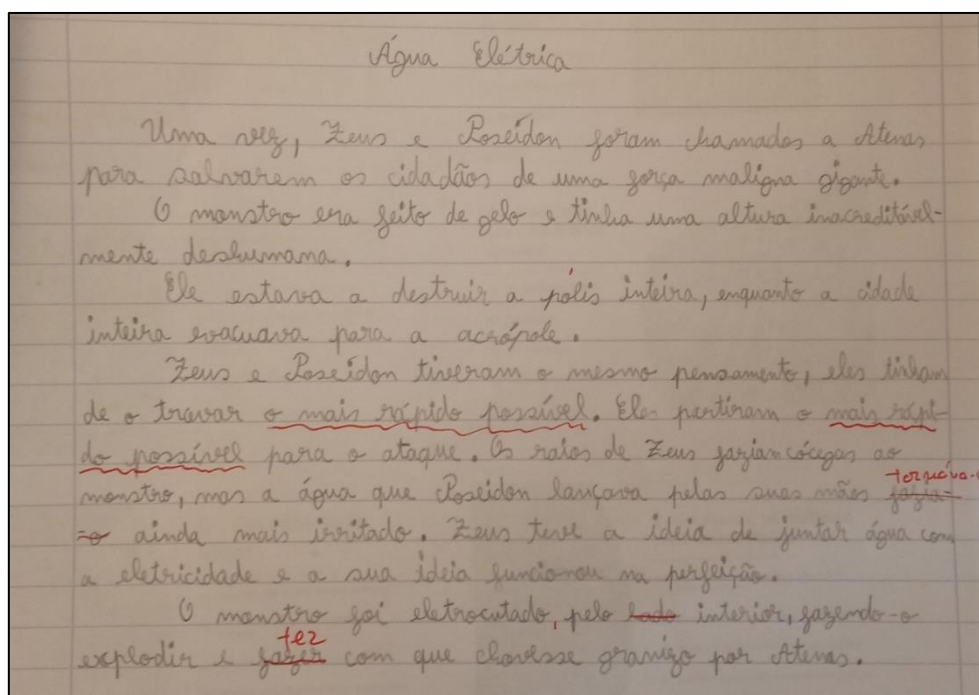 Água Elétrica
Uma vez, Zeus e Poseidon foram chamados a Atenas
para salvarem os cidadãos de uma força maligna gigante.
O monstro era feito de gelo e tinha uma altura inacreditável-
mente deshumana.
Ele estava a destruir a pólis inteira, enquanto a cidade
inteira evacuava para a acrópole.
Zeus e Poseidon tiveram o mesmo pensamento, eles tinham
de o travar o mais rápido possível. Eles partiram o mais rápi-
do possível para o ataque. Os raios de Zeus faziam cócegas ao
monstro, mas a água que Poseidon lançava pelas suas mãos fazia- tornava-o
-o ainda mais irritado. Zeus teve a ideia de juntar água com
a eletricidade e a sua ideia funcionou na perfeição.
O monstro foi eletrocutado, pelo lado interior, fazendo-o
explodir e fazer fez com que chovesse granizo por Atenas.